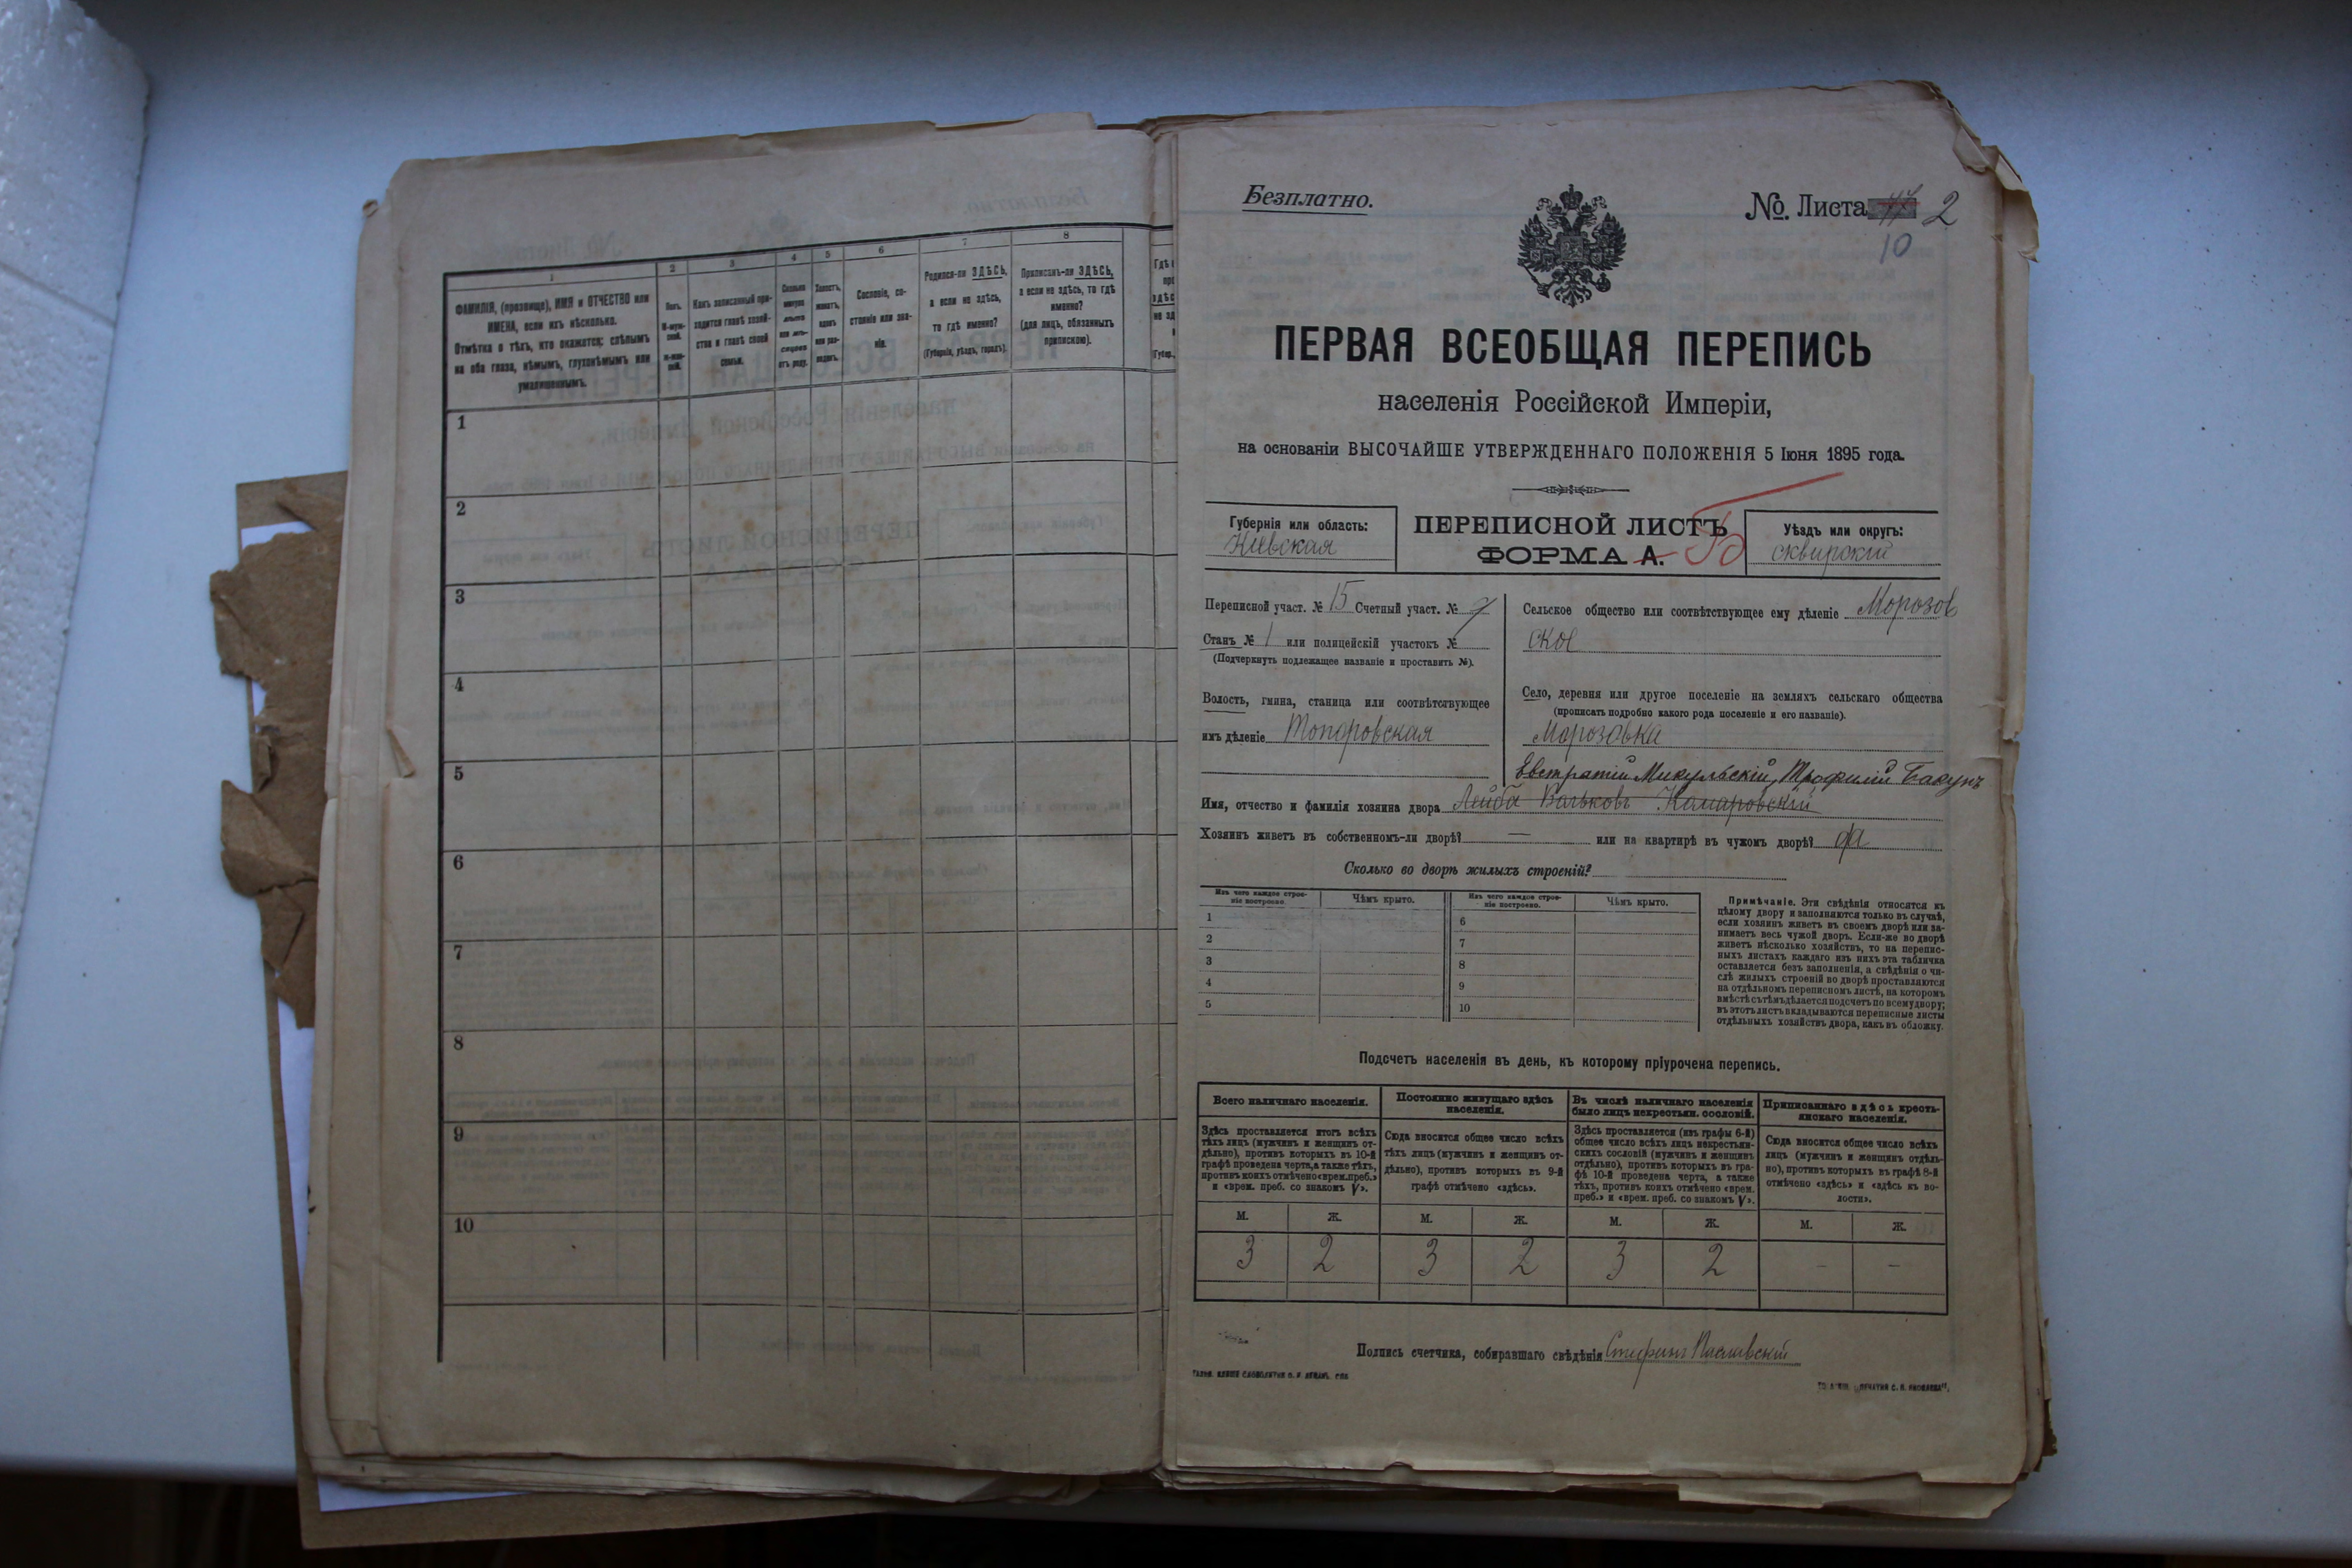 1
2
3
4
5
6
7
8
ФАМИЛІЯ, (прозвище), ИМЯ и ОТЧЕСТВО или
ИМЕНА, если ихъ нѣсколько.
Отмѣтка о тѣхъ, кто окажется: слѣпымъ
на оба глаза, нѣмымъ, глухонѣмымъ или
умалишеннымъ.
Полъ.
М-муж-
ской.
Ж-жен-
скій.
Какъ записанный при-
ходится главѣ хозяй-
ства и главѣ своей
семьи.
Сколько
минуло
лѣтъ
или мѣ-
сяцевъ
отъ роду.
Холостъ,
женатъ,
вдовъ
или раз-
веденъ.
Сословіе, со-
стояніе или зва-
ніе.
Родился-ли ЗДѢСЬ,
а если не здѣсь,
то гдѣ именно?
(Губернія, уѣздъ, городъ).
Приписанъ-ли ЗДѢСЬ,
а если не здѣсь, то гдѣ
именно?
(для лицъ, обязанныхъ
припискою).
1
2
3
4
5
6
7
8
9
10
Безплатно.
№ Листа 2
10
ПЕРВАЯ ВСЕОБЩАЯ ПЕРЕПИСЬ
населенія Россійской Имперіи,
на основаніи ВЫСОЧАЙШЕ УТВЕРЖДЕННАГО ПОЛОЖЕНІЯ 5 Іюня 1895 года.
Губернія или область:
Кіевская
ПЕРЕПИСНОЙ ЛИСТЪ
ФОРМА А. Б
Уѣздъ или округъ:
сквирскій
Переписной участ. № 15 Счетный участ. № 7
Станъ № 1 или полицейскій участокъ №
(Подчеркнуть подлежащее названіе и проставить №).
Волость, гмина, станица или соотвѣтствующее
имъ дѣленіе Топоровская
Сельское общество или соотвѣтствующее ему дѣленіе Морозов
ское
Село, деревня или другое поселеніе на земляхъ сельскаго общества
(прописать подробно какого рода поселеніе и его названіе).
Морозовка
Евстратій Микульскій, Трофимъ Бакунъ
Имя, отчество и фамилія хозяина двора Лейба Вольковъ Комаровскій
Хозяинъ живетъ въ собственномъ-ли дворѣ? — или на квартирѣ въ чужомъ дворѣ? да
Сколько во дворѣ жилыхъ строеній?
Изъ чего каждое строе-
ніе построено.
Чѣмъ крыто.
Изъ чего каждое строе-
ніе построено.
Чѣмъ крыто.
1
2
3
4
5
6
7
8
9
10
Примѣчаніе. Эти свѣдѣнія относятся къ
цѣлому двору и заполняются только въ случаѣ,
если хозяинъ живетъ въ своемъ дворѣ или за-
нимаетъ весь чужой дворъ. Если-же во дворѣ
живетъ нѣсколько хозяйствъ, то на перепис-
ныхъ листахъ каждаго изъ нихъ эта табличка
оставляется безъ заполненія, а свѣдѣнія о чи-
слѣ жилыхъ строеній во дворѣ проставляются
на отдѣльномъ переписномъ листѣ, на которомъ
вмѣстѣ съ тѣмъ дѣлается подсчетъ по всему двору;
въ этотъ листъ вкладываются переписные листы
отдѣльныхъ хозяйствъ двора, какъ въ обложку.
Подсчетъ населенія въ день, къ которому пріурочена перепись.
Всего наличнаго населенія.
Постоянно живущаго здѣсь
населенія.
Въ числѣ наличнаго населенія
было лицъ некрестьян. сословій.
Приписаннаго здѣсь кресть-
янскаго населенія.
Здѣсь проставляется итогъ всѣхъ
тѣхъ лицъ (мужчинъ и женщинъ от-
дѣльно), противъ которыхъ въ 10-й
графѣ проведена черта, а также тѣхъ,
противъ коихъ отмѣчено «врем. преб.»
и «врем. преб. со знакомъ V».
Сюда вносится общее число всѣхъ
тѣхъ лицъ (мужчинъ и женщинъ от-
дѣльно), противъ которыхъ въ 9-й
графѣ отмѣчено «здѣсь».
Здѣсь проставляется (изъ графы 6-й)
общее число всѣхъ лицъ некрестьян-
скихъ сословій (мужчинъ и женщинъ
отдѣльно), противъ которыхъ въ гра-
фѣ 10-й проведена черта, а также
тѣхъ, противъ коихъ отмѣчено «врем.
преб.» и «врем. преб. со знакомъ V».
Сюда вносится общее число всѣхъ
лицъ (мужчинъ и женщинъ отдѣль-
но), противъ которыхъ въ графѣ 8-й
отмѣчено «здѣсь» и «здѣсь къ во-
лости».
М. Ж. М. Ж. М. Ж. М. Ж.
3 2 3 2 3 2 - -
Подпись счетчика, собиравшаго свѣдѣнія Стефанъ